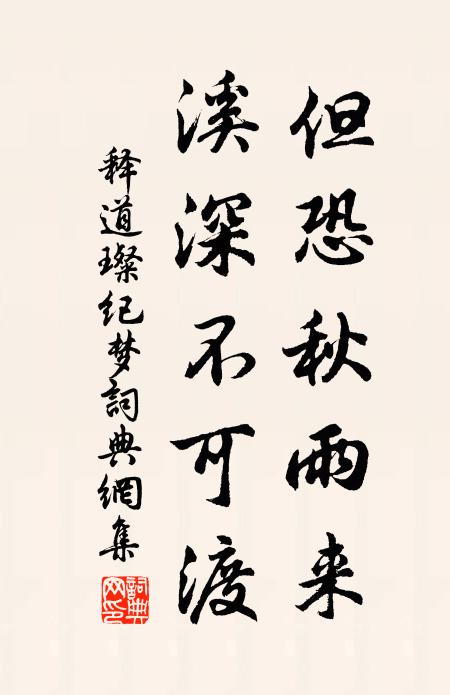 但恐秋雨来
溪深不可渡
释道璨纪梦詞典網集
詞典網印